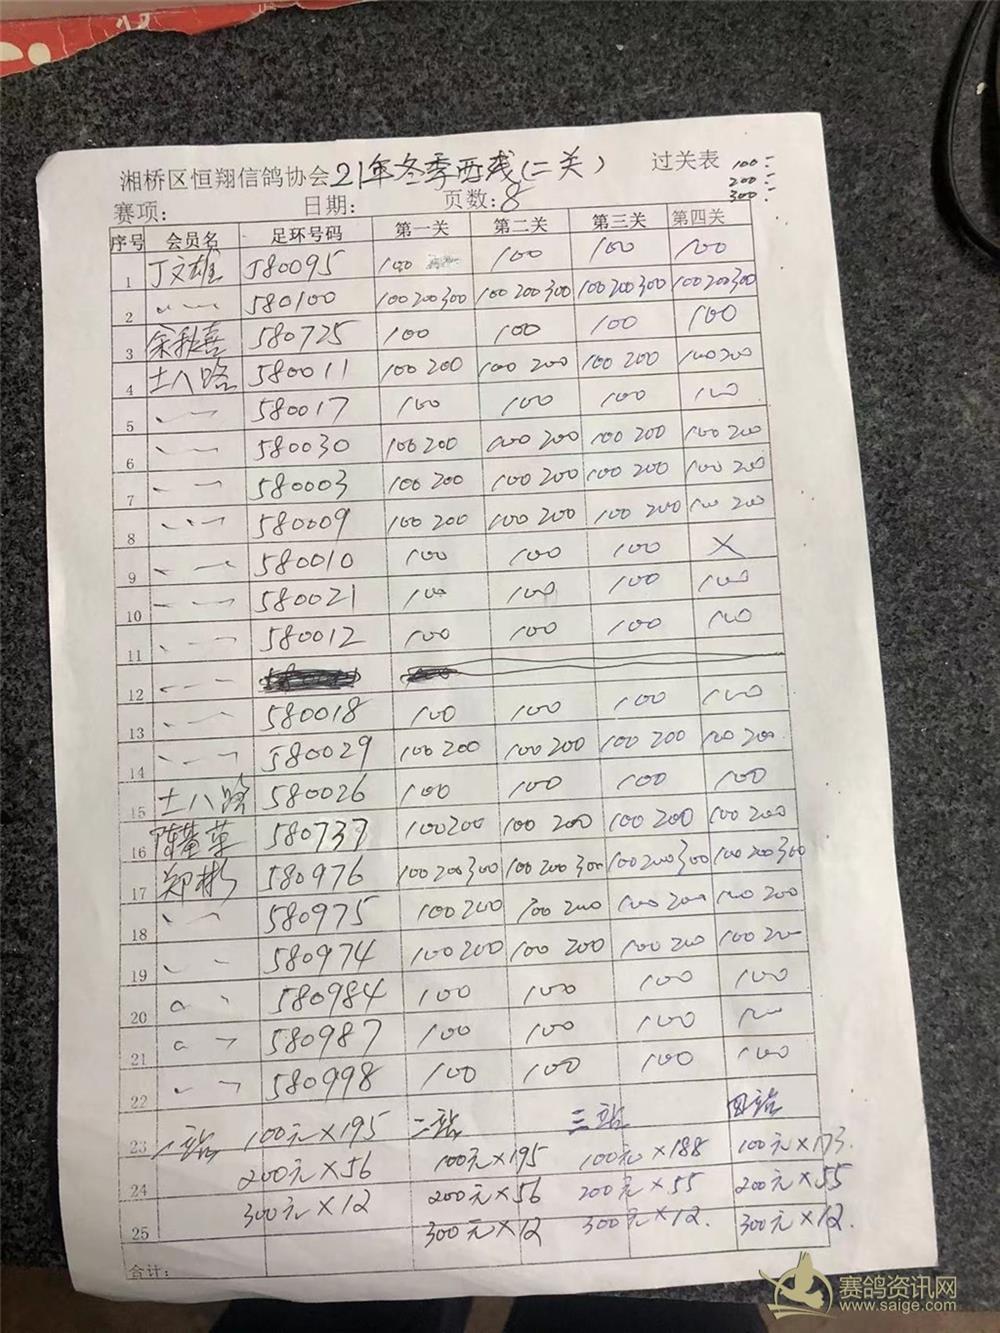 湘桥区恒翔信鸽协会21年冬季西线(二关) 过关表
100:
200:
300:
赛项: 日期: 页数:8
序号 会员名 足环号码 第一关 第二关 第三关 第四关
1 丁文雄 580095 100 100 100 100
2 580100 100 200 300 100 200 300 100 200 300 100 200 300
3 余秋喜 580725 100 100 100 100
4 土八路 580011 100 200 100 200 100 200 100 200
5 580017 100 100 100 100
6 580030 100 200 100 200 100 200 100 200
7 580003 100 200 100 200 100 200 100 200
8 580009 100 200 100 200 100 200 100 200
9 580010 100 100 100 X
10 580021 100 100 100 100
11 580012 100 100 100 100
12
13 580018 100 100 100 100
14 580029 100 200 100 200 100 200 100 200
15 土八路 580026 100 100 100 100
16 580737 100 200 100 200 100 200 100 200
17 郑彬 580976 100 200 300 100 200 300 100 200 300 100 200 300
18 580975 100 200 100 200 100 200 100 200
19 580974 100 200 100 200 100 200 100 200
20 580984 100 100 100 100
21 580987 100 100 100 100
22 580998 100 100 100 100
23 一站 100元×195 二站 三站 四站
24 200元×56 100元×195 100元×188 100元×173.
300元×12 200元×56 200元×55 200元×55
25 300元×12 300元×12. 300元×12.
合计:
赛鸽资讯网
www.saige.com